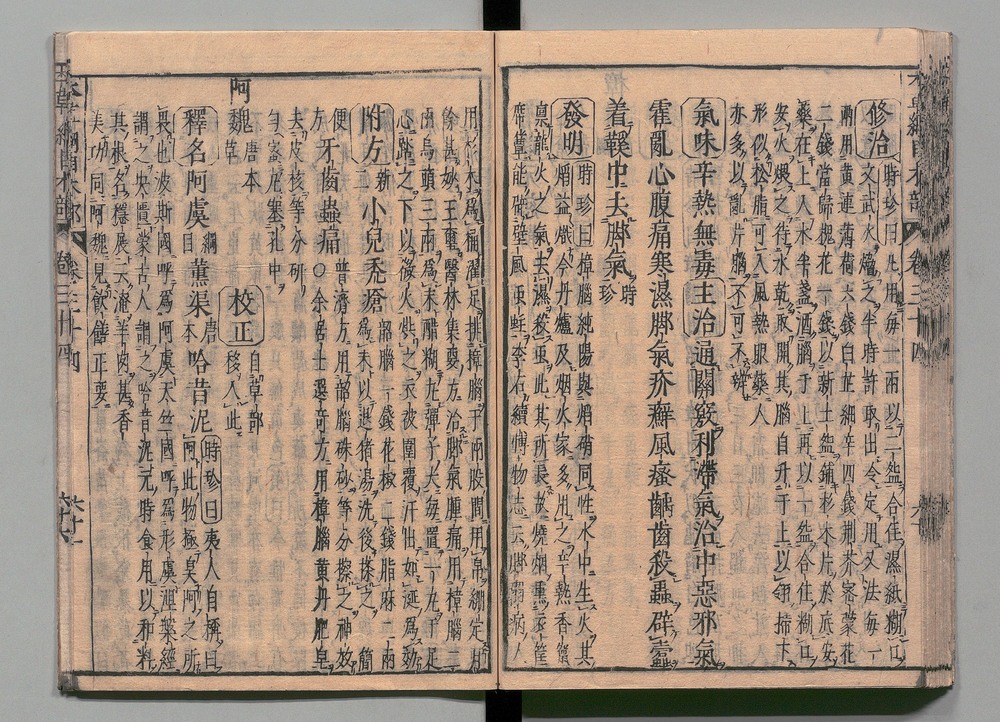 修治時珍曰凡用每一兩以二盌合住濕紙糊口
文武火熁之半時許取出冷定用又法每一
兩用黃連薄荷六錢白芷細辛四錢荊芥密蒙花
二錢當歸槐花一錢以新土盌鋪杉木片於底安
藥在上入水半盞洒腦于上再以一盌合住糊口
安火煨之待水乾取開其腦自升于上以翎掃下
形似松脂可入風熱眼藥人
亦多以亂片腦不可不辨
氣味辛熱無毒主治通關竅利滯氣治中惡邪氣
霍亂心腹痛寒濕脚氣疥癬風瘙齲齒殺蟲辟蠹
着鞵中去脚氣時珍
發明時珍曰樟腦純陽與焰硝同性水中生火其
焰益熾今丹爐及烟火家多用之辛熱香竄
稟龍火之氣去濕殺蟲此其所長故燒烟熏衣筐
席簟能辟壁虱蟲蛀李石續博物志云脚弱病人
用杉木爲桶濯足排樟腦于兩股間用帛綳定月
餘甚妙王璽醫林集要方治脚氣腫痛用樟腦二
兩烏頭三兩爲末醋糊丸彈子大每置一丸于足
心踏之下以微火烘之衣被圍覆汗出如涎爲効
附方新二小兒禿瘡韶腦一錢花椒二錢脂麻二兩爲末以退猪湯洗後搽之簡便
方牙齒蟲痛普濟方用韶腦硃砂等分擦之神效○余居士選奇方用樟腦黃丹肥皂
去皮核等分研
勻蜜丸塞孔中
阿魏唐本草 校正自草部移入此
釋名阿虞綱目薰渠唐本哈昔泥時珍曰夷人自稱曰阿此物極臭阿之所
畏也波斯國呼爲阿虞天竺國呼爲形虞涅槃經
謂之央匱蒙古人謂之哈昔泥元時食用以和料
其根名穩展云淹羊肉甚香
美功同阿魏見飲膳正要
本草綱目木部 卷三十四